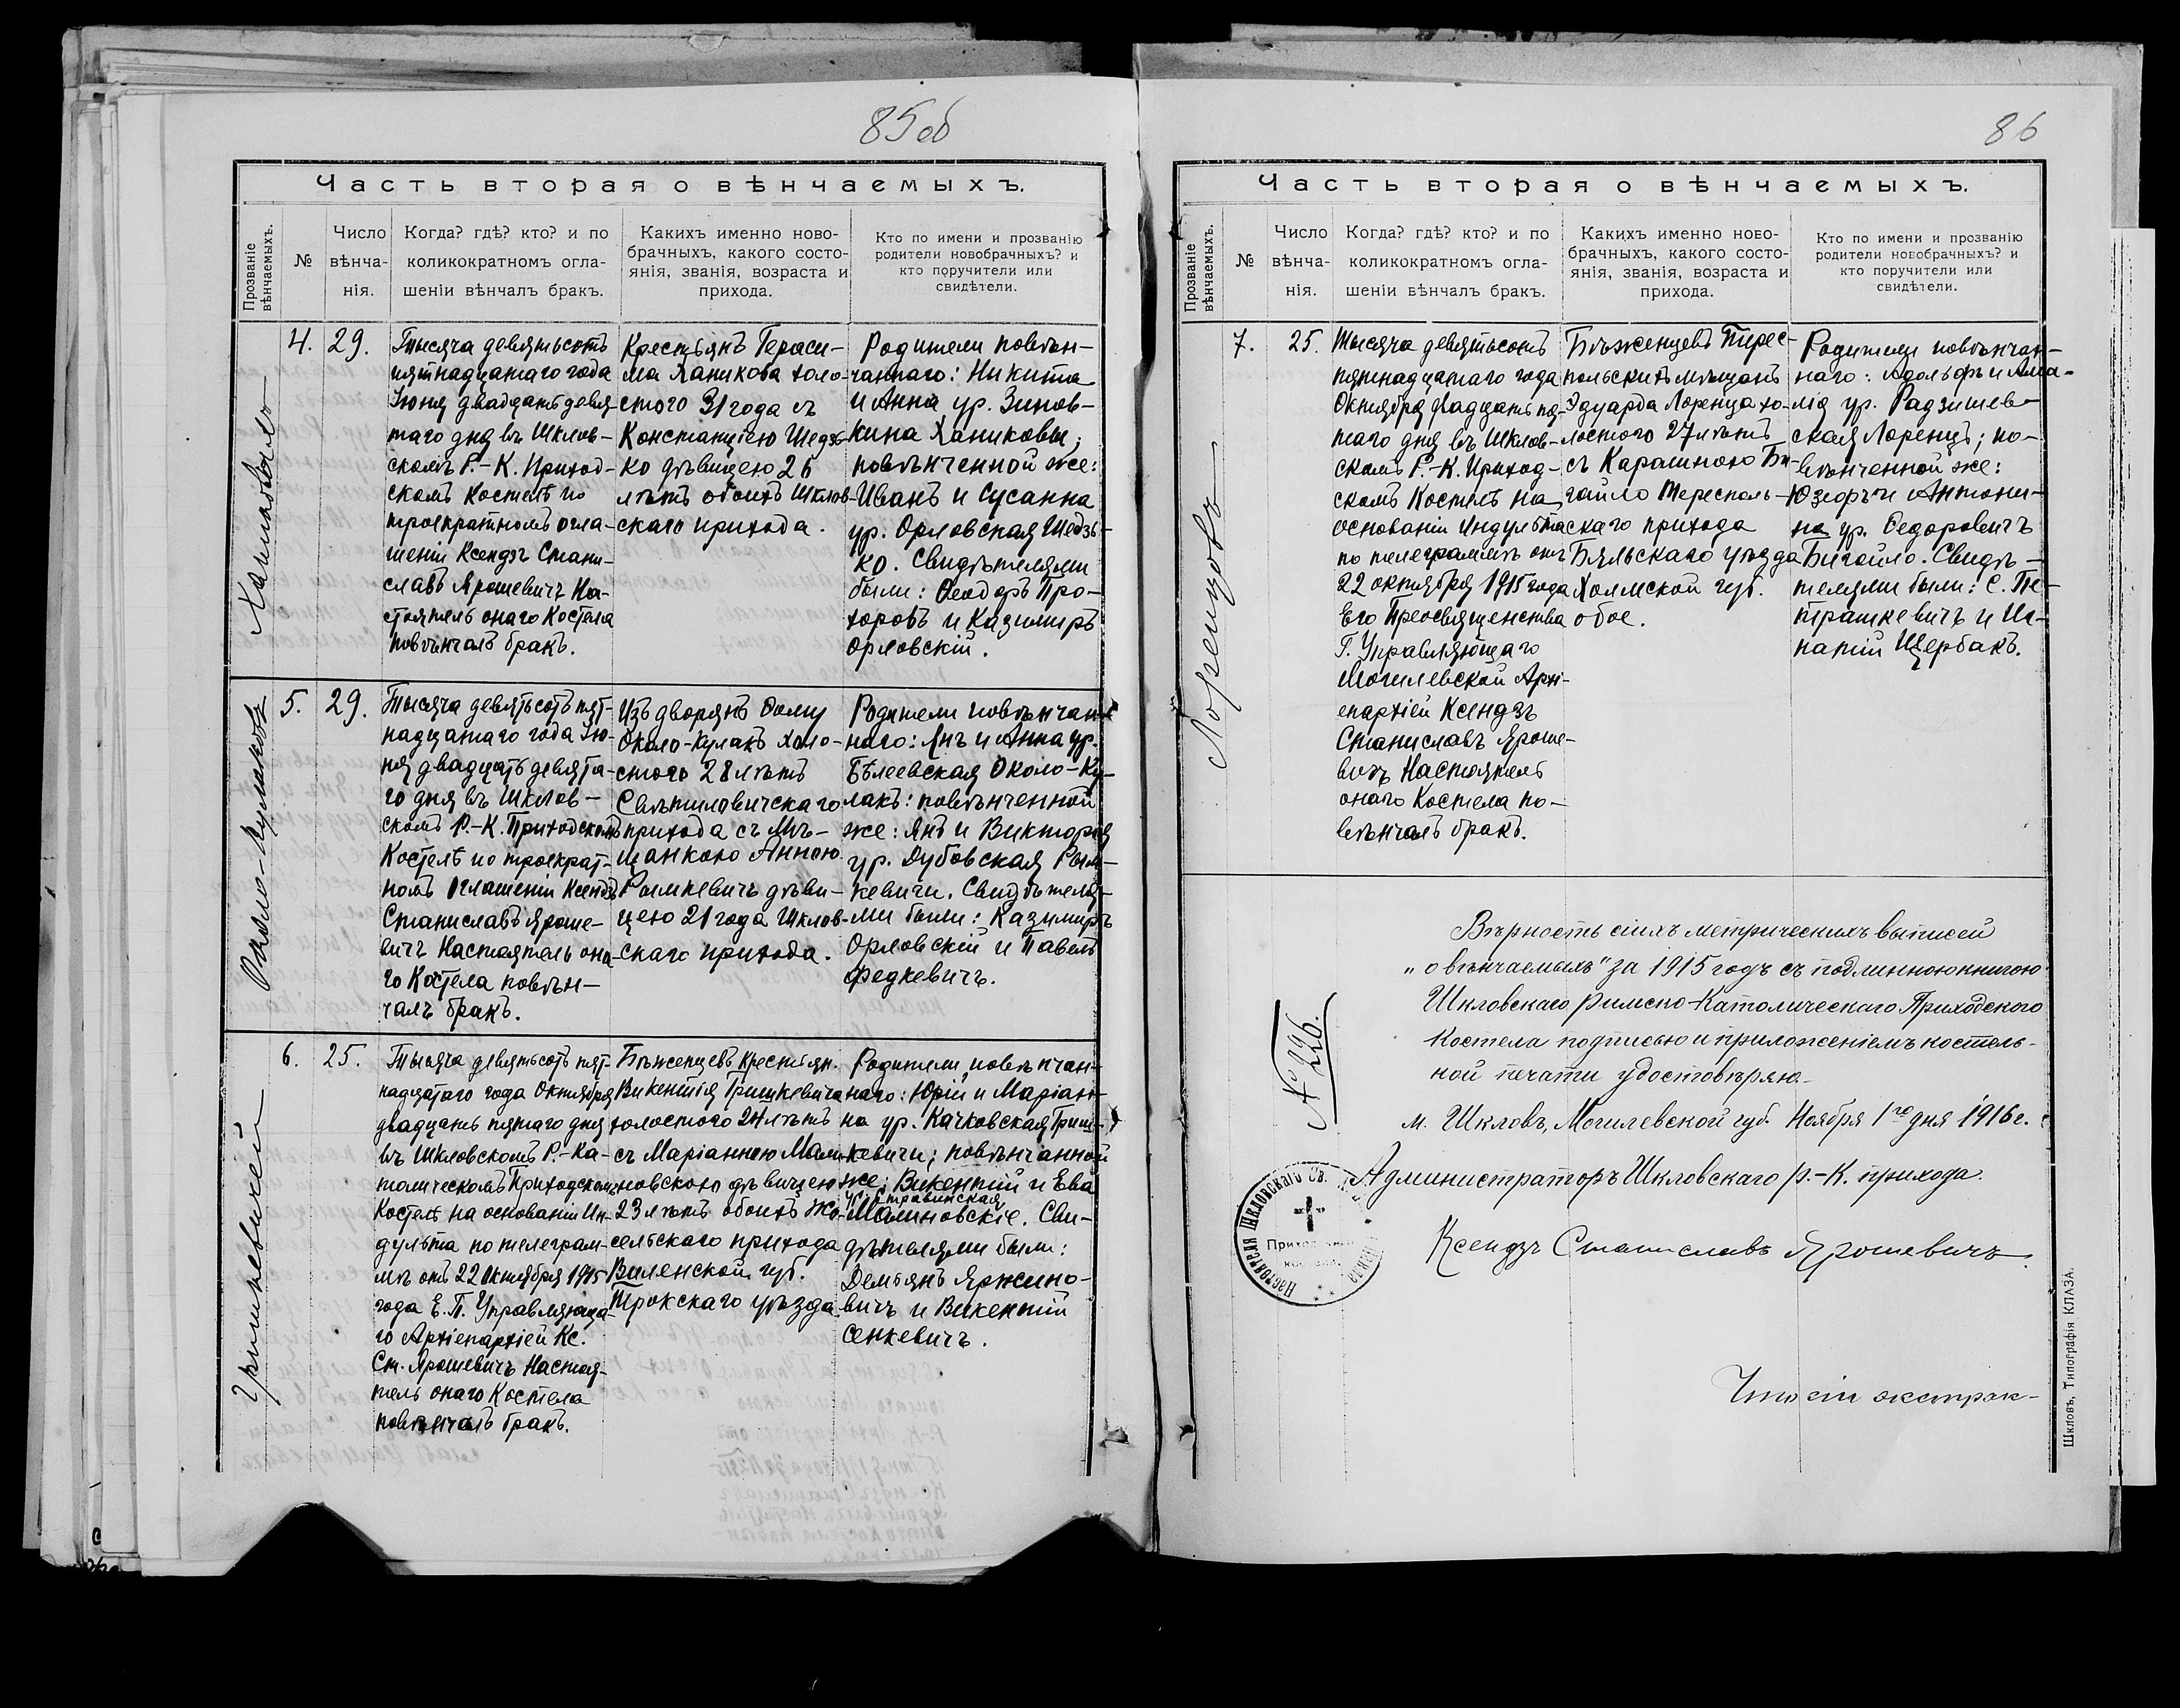 85 об
Часть вторая о вѣнчаемыхъ.
Прозваніе вѣнчаемыхъ.
№
Число вѣнча-нія.
Когда? гдѣ? кто? и по
коликократномъ огла-
шеніи вѣнчалъ бракъ.
Какихъ именно ново-
брачныхъ, какого состо-
янія, званія, возраста и
прихода.
Кто по имени и прозванію
родители новобрачныхъ? и
кто поручители или
свидѣтели.
4.
29.
Тысяча девятьсотъ
пятнадцатаго года
Іюня двадцать девя-
таго дня въ Шклов-
скомъ Р.-К. Приход-
скомъ Костелѣ по
троекратномъ огла-
шеніи Ксендзъ Стани-
славъ Ярошевичъ На-
стоятель онаго Костела
повѣнчалъ бракъ.
Крестьянъ Гераси-
ма Ханикова холо-
стого 31 года съ
Констанціею Шедзь-
ко дѣвицею 26
лѣтъ обоихъ Шклов-
скаго прихода.
Родители повѣн-
чаннаго: Никита
и Анна ур. Зинов-
кина Ханиковы;
повѣнченной же:
Иванъ и Сусанна
ур. Орловская Шедзь-
ко. Свидѣтелями
были: Ѳеодоръ Про-
хоровъ и Казимиръ
Орловскій.
Около-Кулаковъ
5.
29.
Тысяча девятьсотъ пят-
надцатаго года Ію-
ня двадцать девята-
го дня въ Шклов-
скомъ Р.-К. Приходскомъ
Костелѣ по троекрат-
номъ оглашеніи Ксендзъ
Станиславъ Яроше-
вичъ Настоятель она-
го Костела повѣн-
чалъ бракъ.
Изъ дворянъ Фому
Около-Кулакъ холо-
стого 28 лѣтъ
Свѣтиловичскаго
прихода съ Мѣ-
щанкою Анною
Рымкевичъ дѣви-
цею 21 года Шклов-
скаго прихода.
Родители повѣнчан-
наго: Янъ и Анна ур.
Бѣлеевская Около-Ку-
лакъ: повѣнченной
же: Янъ и Викторія
ур. Дубовская Рым-
кевичи. Свидѣтеля-
ми были: Казимиръ
Орловскій и Павелъ
Федкевичъ.
Гришкевичей
6.
25.
Тысяча девятьсотъ пят-
надцатаго года Октября
двадцать пятаго дня
въ Шкловскомъ Р.-Ка-
толическомъ Приходскомъ
Костелѣ на основаніи Ин-
дульта по телеграм-
мѣ отъ 22 Октября 1915
года Е. П. Управляюща-
го Архіепархіей Кс.
Ст. Ярошевичъ Настоя-
тель онаго Костела
повѣнчалъ бракъ.
Бѣженцевъ крестьян.
Викентія Гришкевича
холостого 24 лѣтъ
съ Маріанною Мали-
новскою дѣвицею
23 лѣтъ обоихъ Жо-
сельскаго прихода
Виленской губ.
Трокскаго уѣзда
Родители повѣнчан-
наго: Юрій и Маріан-
на ур. Качковская Гриш-
кевичи; повѣнчанной
же: Викентій и Ева
ур. Стравинская
Малиновскіе. Сви-
дѣтелями были:
Демьянъ Яржино-
вичъ и Викентій
Сенкевичъ.
86
Часть вторая о вѣнчаемыхъ.
Прозваніе вѣнчаемыхъ.
№
Число вѣнча-нія.
Когда? гдѣ? кто? и по
коликократномъ огла-
шеніи вѣнчалъ бракъ.
Какихъ именно ново-
брачныхъ, какого состо-
янія, званія, возраста и
прихода.
Кто по имени и прозванію
родители новобрачныхъ? и
кто поручители или
свидѣтели.
Лоренцовъ
7.
25.
Тысяча девятьсотъ
пятнадцатаго года
Октября двадцать пя-
таго дня въ Шклов-
скомъ Р.-К. Приход-
скомъ Костелѣ на
основаніи Индульта
по телеграммѣ отъ
22 октября 1915 года
Его Преосвященства
Г. Управляющаго
Могилевской Архи-
епархіей Ксендзъ
Станиславъ Яроше-
вичъ Настоятель
онаго Костела по-
вѣнчалъ бракъ.
Бѣженцевъ Терес-
польскихъ мѣщанъ
Эдуарда Лоренца хо-
лостого 27 лѣтъ
съ Каролиною Би-
гайло Тересполь-
скаго прихода
Бяльскаго уѣзда
Холмской губ.
обое.
Родители повѣнчан-
наго: Адольфъ и Ама-
лія ур. Радзишев-
ская Лоренцъ; по-
вѣнченной же:
Юзефъ и Антони-
на ур. Ѳедоровичъ
Бигайло. Свидѣ-
телями были: С. Пе-
трашкевичъ и Иг-
натій Щербакъ.
Вѣрность сихъ метрическихъ выписей
„о вѣнчаемыхъ" за 1915 годъ съ подлинною книгою
Шкловскаго Римско-Католическаго Приходского
Костела подписью и приложеніемъ костель-
ной печати удостовѣряю.
№ 226.
м. Шкловъ, Могилевской губ. Ноября 1го дня 1916 г.
Администраторъ Шкловскаго р.-К. прихода.
Ксендзъ Станиславъ Ярошевичъ.
Что сіи экстрак-
Шкловъ, Типографія КЛАЗА.